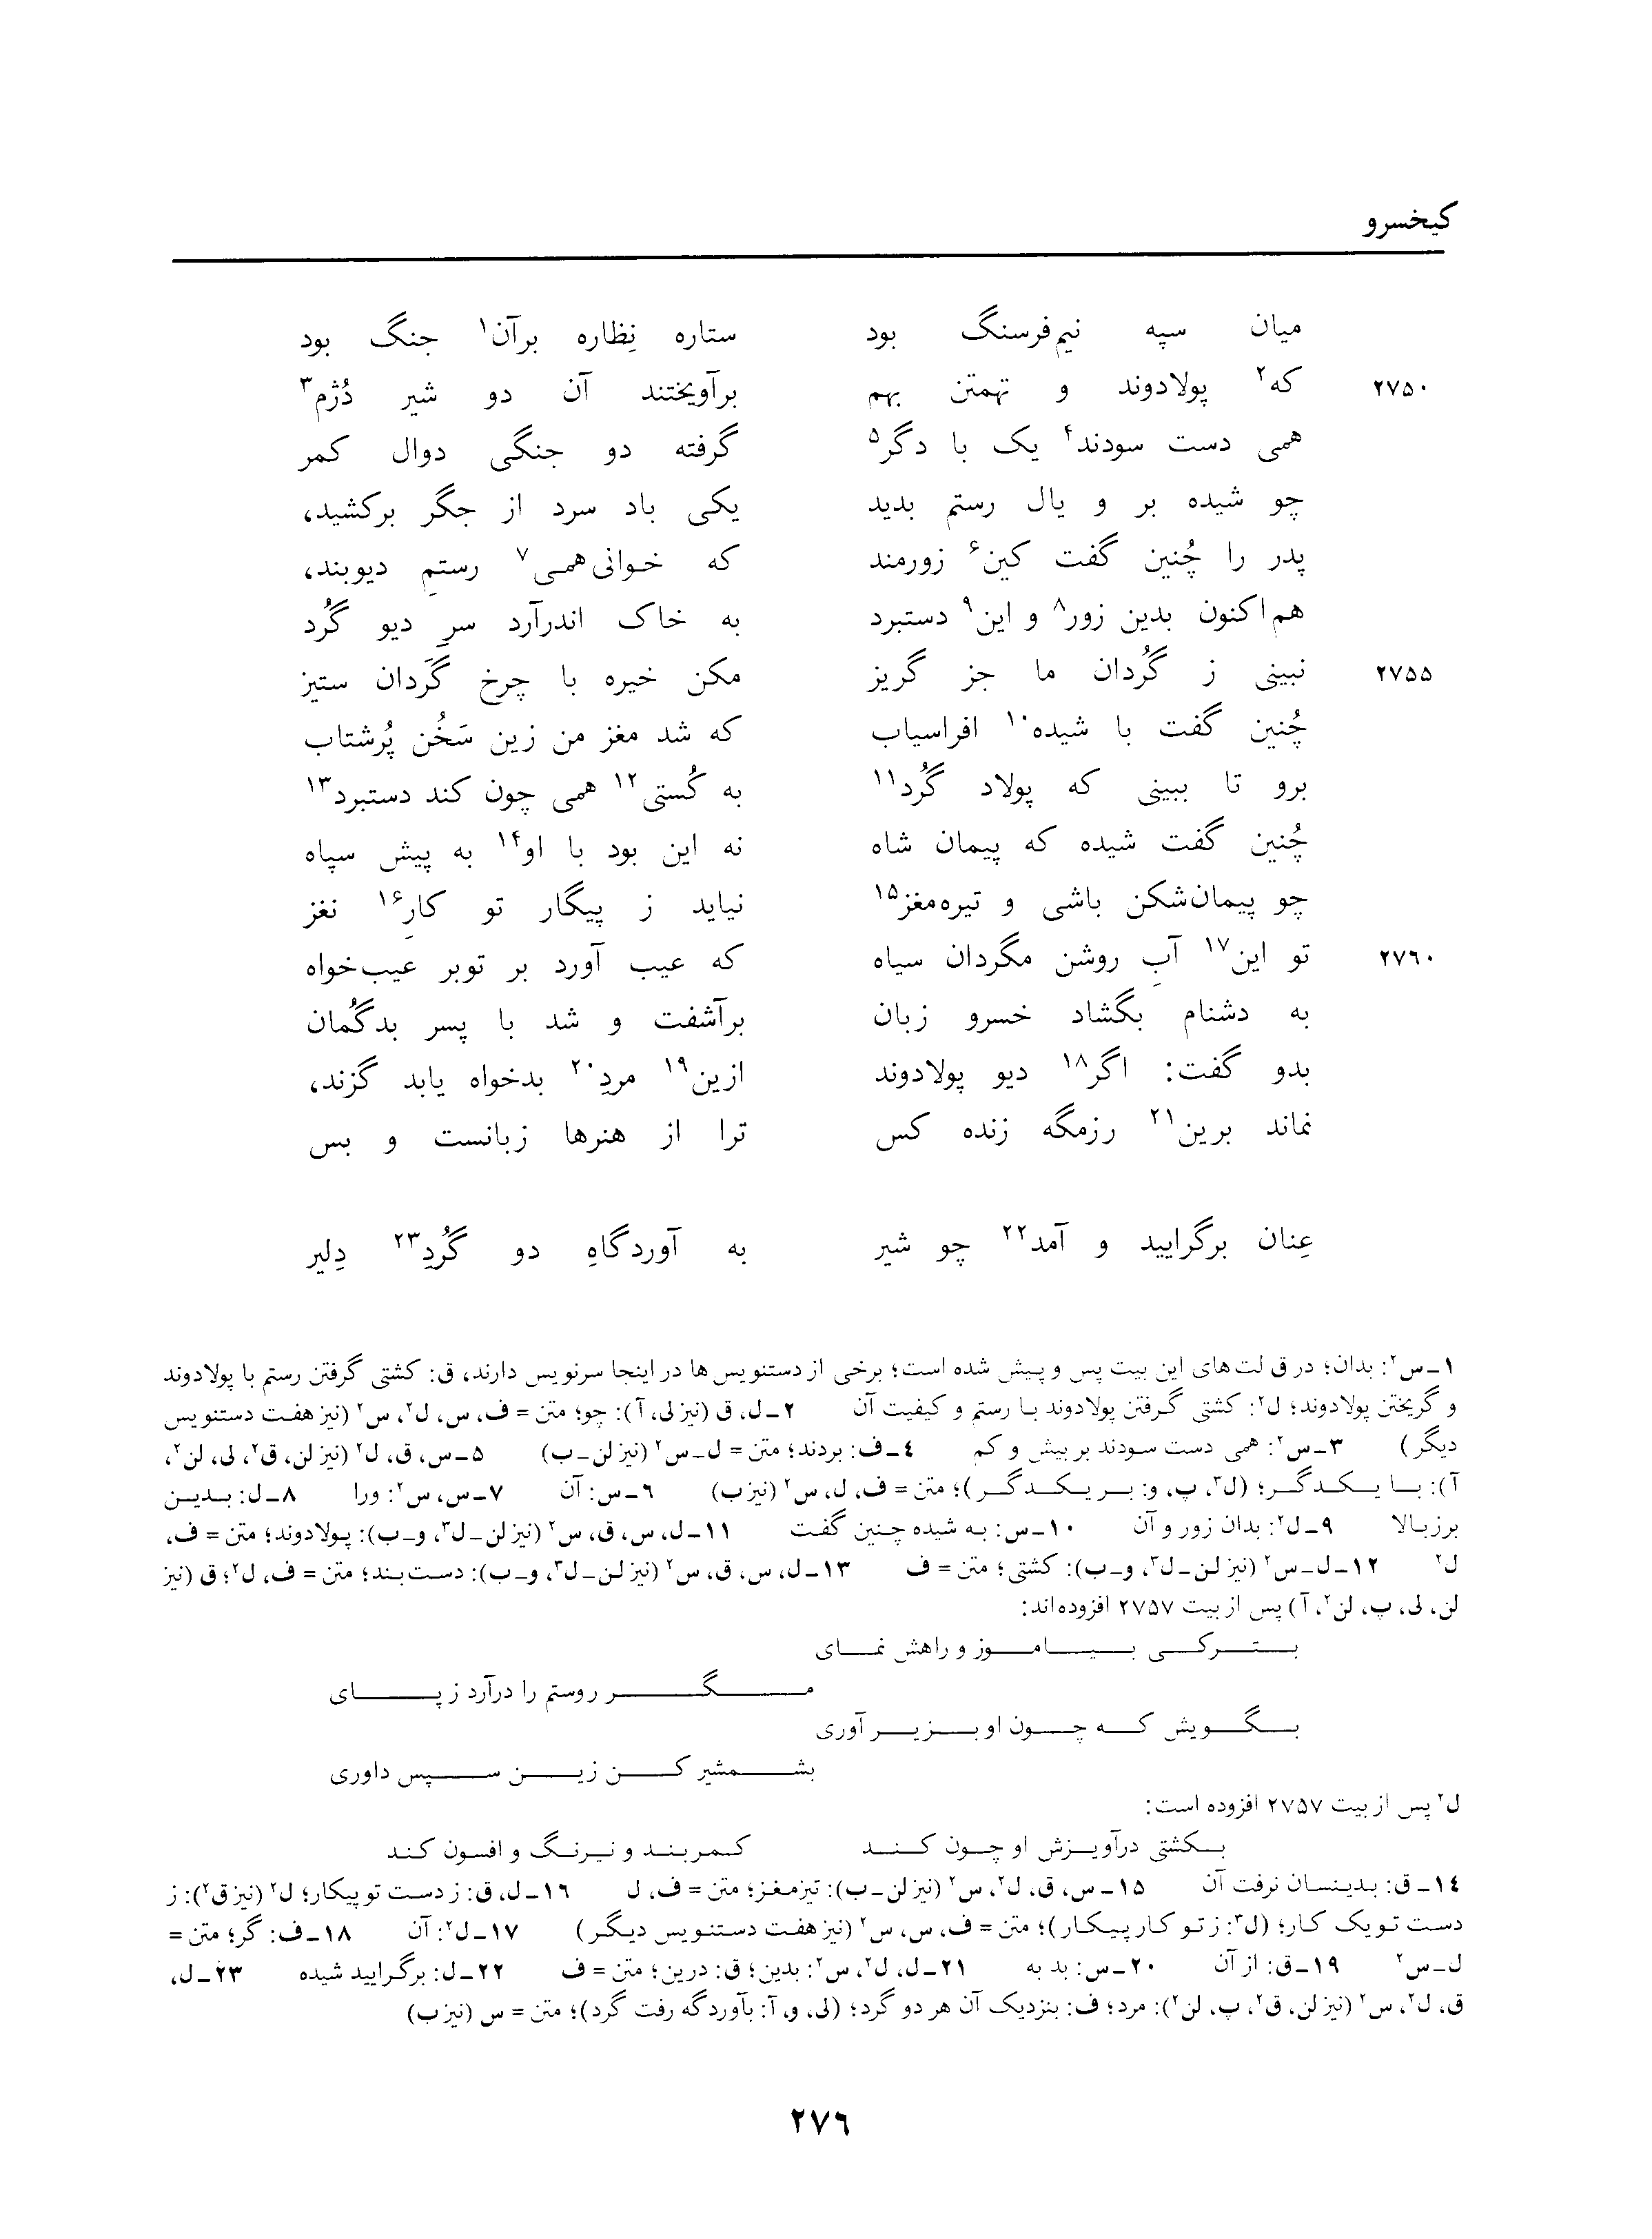 کیخسرو
میان سپه نیم‌فرسنگ بود ستاره نِظاره برآن۱ جنگ بود
۲۷۵۰ که۲ پولادوند و تهمتن بهم برآویختند آن دو شیر دُژم۳
همی دست سودند۴ یک با دگر۵ گرفته دو جنگی دوال کمر
چو شیده بر و یال رستم بدید یکی باد سرد از جگر برکشید،
پدر را چُنین گفت کین۶ زورمند که خوانی‌همی۷ رستمِ دیوبند،
هم‌اکنون بدین زور۸ و این۹ دستبرد به خاک اندرآرد سرِ دیو گُرد
۲۷۵۵ نبینی ز گُردان ما جز گریز مکن خیره با چرخ گَردان ستیز
چُنین گفت با شیده۱۰ افراسیاب که شد مغز من زین سَخُن پُرشتاب
برو تا ببینی که پولاد گُرد۱۱ به کُستی۱۲ همی چون کند دستبرد۱۳
چُنین گفت شیده که پیمان شاه نه این بود با او۱۴ به پیش سپاه
چو پیمان‌شکن باشی و تیره‌مغز۱۵ نیاید ز پیگار تو کارِ۱۶ نغز
۲۷۶۰ تو این۱۷ آبِ روشن مگردان سیاه که عیب آورد بر توبر عیب‌خواه
به دشنام بگشاد خسرو زبان برآشفت و شد با پسر بدگُمان
بدو گفت: اگر۱۸ دیو پولادوند ازین۱۹ مردِ۲۰ بدخواه یابد گزند،
نماند برین۲۱ رزمگه زنده کس ترا از هنرها زبانست و بس
عِنان برگرایید و آمد۲۲ چو شیر به آوردگاهِ دو گُردِ۲۳ دِلیر
۱ـ س۲: بدان؛ در ق لت‌های این بیت پس و پیش شده است؛ برخی از دستنویس‌ها در اینجا سرنویس دارند، ق: کشتی گرفتن رستم با پولادوند
و گریختن پولادوند؛ ل۲: کشتی گرفتن پولادوند با رستم و کیفیت آن ۲ـ ل، ق (نیز لی، آ): چو؛ متن = ف، س، ل۲، س۲ (نیز هفت دستنویس
دیگر) ۳ـ س۲: همی دست سودند بر بیش و کم ۴ـ ف: بردند؛ متن = ل ـ س۲ (نیز لن ـ ب) ۵ـ س، ق، ل۲ (نیز لن، ق۲، لی، لن۲،
آ): با یکدگر؛ (ل۳، پ، و: بر یکدگر)؛ متن = ف، ل، س۲ (نیز ب) ۶ـ س: آن ۷ـ س، س۲: ورا ۸ـ ل: بدین
برزبالا ۹ـ ل۲: بدان زور و آن ۱۰ـ س: به شیده چنین گفت ۱۱ـ ل، س، ق، س۲ (نیز لن ـ ل۳، و ـ ب): پولادوند؛ متن = ف،
ل۲ ۱۲ـ ل ـ س۲ (نیز لن ـ ل۳، و ـ ب): کشتی؛ متن = ف ۱۳ـ ل، س، ق، س۲ (نیز لن ـ ل۳، و ـ ب): دست‌بند؛ متن = ف، ل۲؛ ق (نیز
لن، لی، پ، لن۲، آ) پس از بیت ۲۷۵۷ افزوده‌اند:
بترکی بیاموز و راهش نمای
مگر روستم را درآرد ز پای
بگویش که چون او بزیر آوری
بشمشیر کن زین سپس داوری
ل۲ پس از بیت ۲۷۵۷ افزوده است:
بکشتی درآویزش او چون کند کمربند و نیرنگ و افسون کند
۱۴ـ ق: بدینسان نرفت آن ۱۵ـ س، ق، ل۲، س۲ (نیز لن ـ ب): تیزمغز؛ متن = ف، ل ۱۶ـ ل، ق: ز دست تو پیکار؛ ل۲ (نیز ق۲): ز
دست تو یک کار؛ (ل۳: ز تو کار پیکار)؛ متن = ف، س، س۲ (نیز هفت دستنویس دیگر) ۱۷ـ ل۲: آن ۱۸ـ ف: گر؛ متن =
ل ـ س۲ ۱۹ـ ق: از آن ۲۰ـ س: بد به ۲۱ـ ل، ل۲، س۲: بدین؛ ق: درین؛ متن = ف ۲۲ـ ل: برگرایید شیده ۲۳ـ ل،
ق، ل۲، س۲ (نیز لن، ق۲، پ، لن۲): مرد؛ ف: بنزدیک آن هر دو گرد؛ (لی، و، آ: بآوردگه رفت گرد)؛ متن = س (نیز ب)
۲۷۶